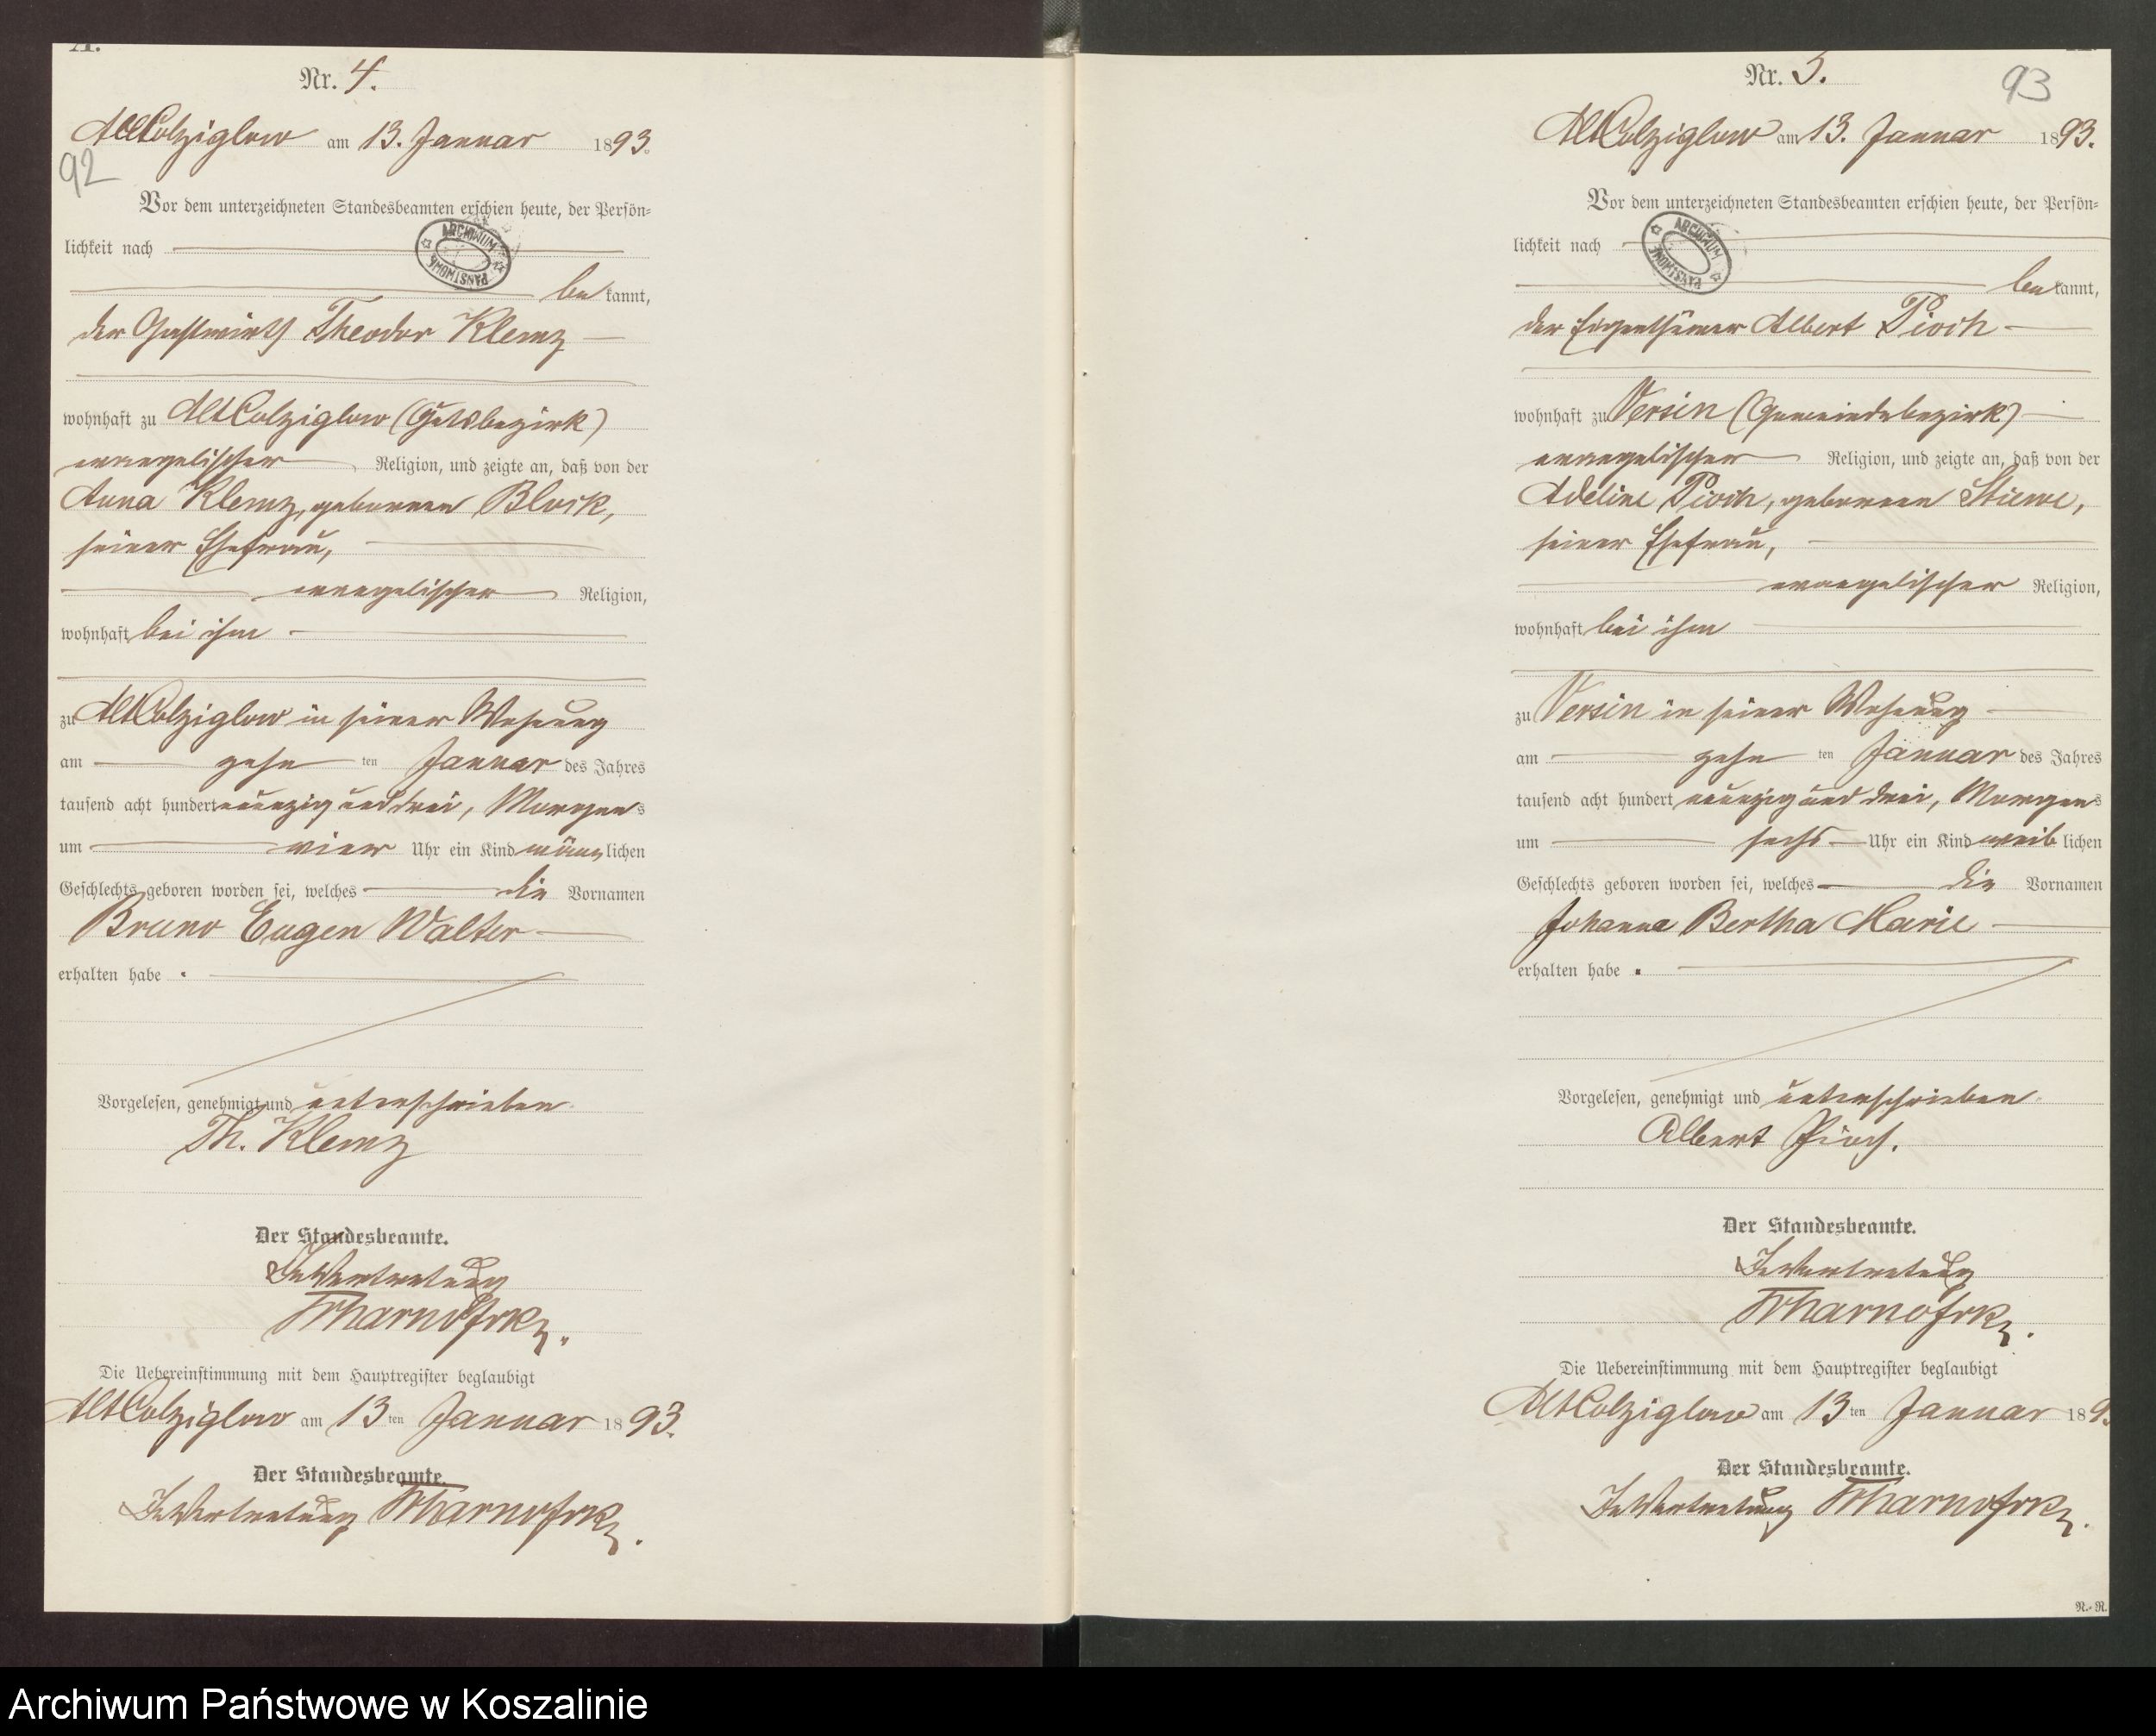 Nr. 4.
AltColziglow am 13. Januar 1893.
92
Vor dem unterzeichneten Standesbeamten erschien heute, der Persön=
lichkeit nach
be kannt,
der Gastwirth Theodor Klemz
wohnhaft zu AltColziglow (Gutsbezirk)
evangelischer Religion, und zeigte an, daß von der
Anna Klemz, geborenen Block,
seiner Ehefrau,
evangelischer Religion,
wohnhaft bei ihm
zu AltColziglow in seiner Wohnung
am zehn ten Januar des Jahres
tausend acht hundert neunzig und drei, Morgens
um vier Uhr ein Kind männlichen
Geschlechts geboren worden sei, welches die Vornamen
Bruno Eugen Walter
erhalten habe.
Vorgelesen, genehmigt und unterschrieben.
Th. Klemz
Der Standesbeamte.
In Vertretung
Die Uebereinstimmung mit dem Hauptregister beglaubigt
AltColziglow am 13 ten Januar 1893.
Der Standesbeamte.
In Vertretung
ARCHIWUM PAŃSTWOWE
Nr. 5.
93
AltColziglow am 13. Januar 1893.
Vor dem unterzeichneten Standesbeamten erschien heute, der Persön=
lichkeit nach
be kannt,
der Eigenthümer Albert Pioch
wohnhaft zu Versin (Gemeindebezirk)
evangelischer Religion, und zeigte an, daß von der
Adeline Pioch, geborenen Stiewe,
seiner Ehefrau,
evangelischer Religion,
wohnhaft bei ihm
zu Versin in seiner Wohnung
am zehn ten Januar des Jahres
tausend acht hundert neunzig und drei, Morgens
um sechs Uhr ein Kind weiblichen
Geschlechts geboren worden sei, welches die Vornamen
Johanna Bertha Marie
erhalten habe.
Vorgelesen, genehmigt und unterschrieben.
Albert Pioch.
Der Standesbeamte.
In Vertretung
Die Uebereinstimmung mit dem Hauptregister beglaubigt
AltColziglow am 13 ten Januar 189
Der Standesbeamte.
In Vertretung
ARCHIWUM PAŃSTWOWE
N.-N.
Archiwum Państwowe w Koszalinie